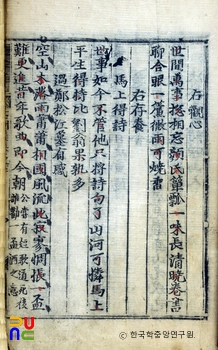 右觀心
世間萬事揔相忘顔氏簞瓢一味長清曉卷書
聊合眼一簾微雨可燒香
右存養
馬上得詩
世事如今不管他只將詩句了山河可憐馬上
平生得詩比劉翁果孰多
過鄭松江墓有感
空山木落雨蕭蕭相國風流此寂寥惆悵一盃
難更進昔年歌曲卽今朝
公嘗有短歌道死後
盃酒之意
ⓒ 한국학중앙연구원